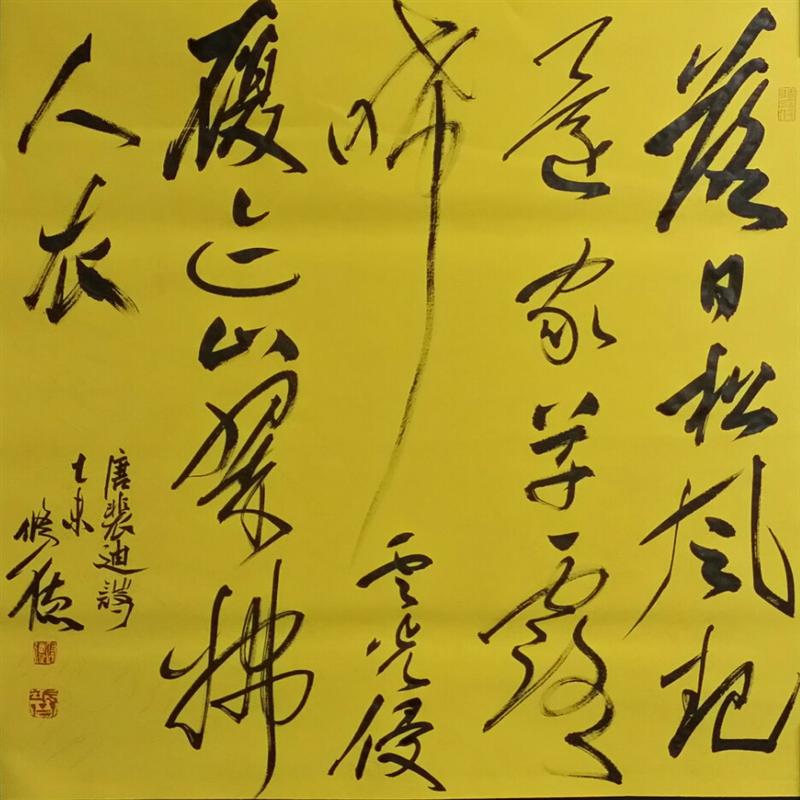 落日松風起
還家草露
晞云光侵
履迹山翠拂
人衣
唐裴迪詩
修德